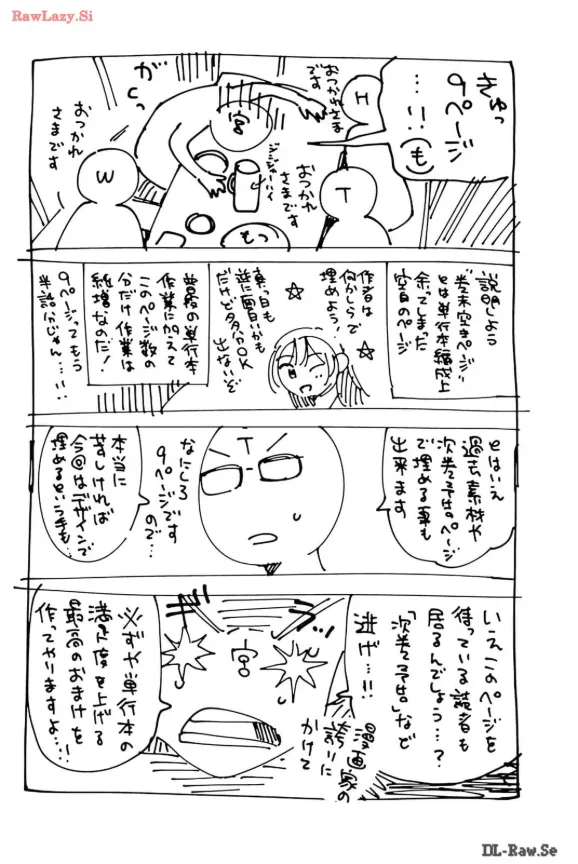 RawLazy.Si
きゅっ
9ページ
…!!(も)
H
おつかれさま
です
がっ
宮
おつかれ
さまです
W
ジンジャーハイ
おつかれ
さまです
T
もっ
説明しよう
"巻末空きページ"
とは単行本編成上
余ってしまった
空白のページ
作者は
何かしらで
埋めよう!
真っ白も
逆に面白いかも
だけど多分OK
出ないぞ
普段の単行本
作業に加えて
このページ数の
分だけ作業は
純増なのだ!
9ページってもう
半話分じゃん…!!
とはいえ
過去素材や
次巻予告ページ
で埋める事も
出来ます
T
なにしろ
9ページです
ので…
本当に
苦しければ
今回はデザインで
埋めるという手も…
いえこのページを
待っている読者も
居るんでしょう…?
「次巻予告」など
逃げ…!!
漫画家の
誇りに
かけて
宮
必ずや単行本の
満足度を上げる
最高のおまけを
作ってやりますよ…!!
DL-Raw.Se